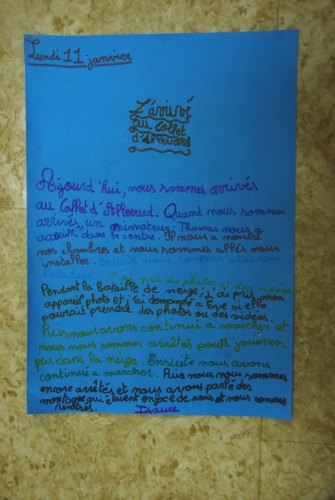 Lundi 11 janvier
L'arrivé
au Collet
d'Allevard
Aujourd'hui, nous sommes arrivés
au Collet d'Allevard. Quand nous sommes
arrivés, un animateur Thomas nous a
accueilli dans le centre. Il nous a montré
nos chambres et nous sommes allés nous
installer. Ensuite nous sommes allés nous
balader.
Pendant la bataille de neige, j'ai pris mon
appareil photo et j'ai demandé à Eve si elle
pourrait prendre des photos ou des vidéos.
Puis nous avons continué a marcher et
nous nous sommes arrêtés pour jouer un
peu dans la neige. Ensuite nous avons
continué a marcher. Puis nous nous sommes
encore arrêtés et nous avons parlé des
montagnes qui étaient en face de nous et nous sommes
rentrés.
Isaure